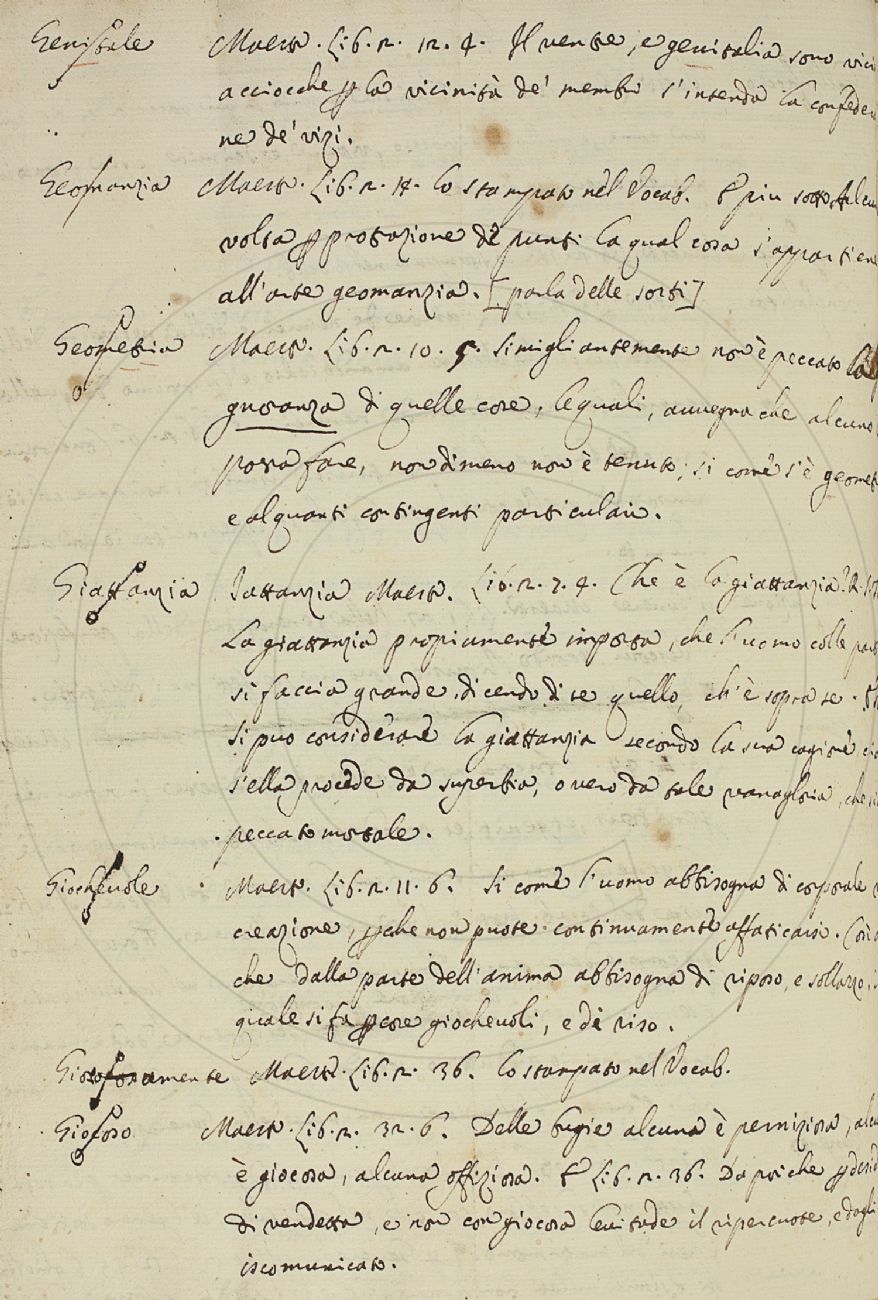 Genitale Maest. Lib. 2. 12. 4. Il ventre, e genitalia sono vici
acciocchè p la vicinità de' membri s'intenda la confedera
ne de' vizi.
Geomanzia Maest. Lib. 2. 14. lo stampato nel Vocab. E più sotto Alcuna
volta p protrazione di punti la qual cosa s'appartiene
all'arte geomanzia. [parla delle sorti]
Geometria Maest. Lib. 2. 10. 5. Simigliantemente non è peccato la
gnoranza di quelle cose, le quali, avvegna che alcuno
possa fare, nondimeno non è tenuto, si come s'è geomet
e alquanti contingenti particulari.
Giattanzia Jattanzia Maest. Lib. 2. 7. 4. Che è la giattanzia? R.
La giattanzia propiamente importa, che l'uomo colle par
si faccia grande, dicendo di se quello, ch'è sopra se.
si può considerare la giattanzia secondo la sua cagione
s'ella procede da superbia, o vero da tale vanagloria, che
peccato mortale.
Giochevole Maest. Lib. 2. 11. 6. Si come l'uomo abbisogna di corporale
creazione, pche non puote continuamente affaticarsi. Così
che dalla parte dell'anima abbisogna di riposo, e sollazzo,
quale si fa p cose giochevoli, e di riso.
Giocosamente Maest. Lib. 2. 36. lo stampato nel Vocab.
Giocoso Maest. Lib. 2. 32. 6. Delle bugie alcuna è perniziosa, alcu
è giocosa, alcuna offiziosa. E Lib. 2. 36. Da poi che p desid
di vendetta, e non con giocosa levitade il ripercuote, e dagli
iscomunicato.